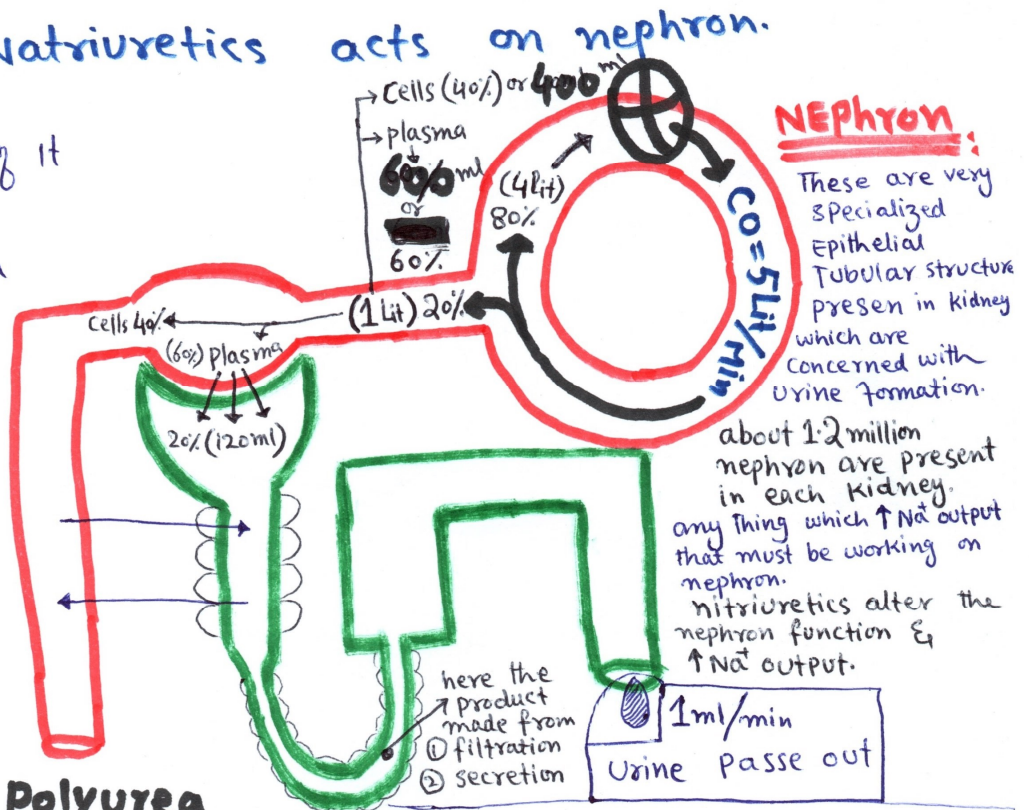 Natriuretics acts on nephron.
of it
Cells (40%) or 400 ml
plasma
600 ml
or
60%
(4Lit)
80%
CO=5Lit/Min
(1Lit) 20%
Cells 40%
(60%) plasma
20% (120ml)
NEPhron :
These are very
specialized
Epithelial
Tubular structure
presen in kidney
which are
concerned with
urine Formation.
about 1.2 million
nephron are present
in each kidney.
any thing which ↑ Na⁺ output
that must be working on
nephron.
nitriuretics alter the
nephron function &
↑ Na⁺ output.
here the
product
made from
① filtration
② secretion
1ml/min
Urine passe out
Polyurea